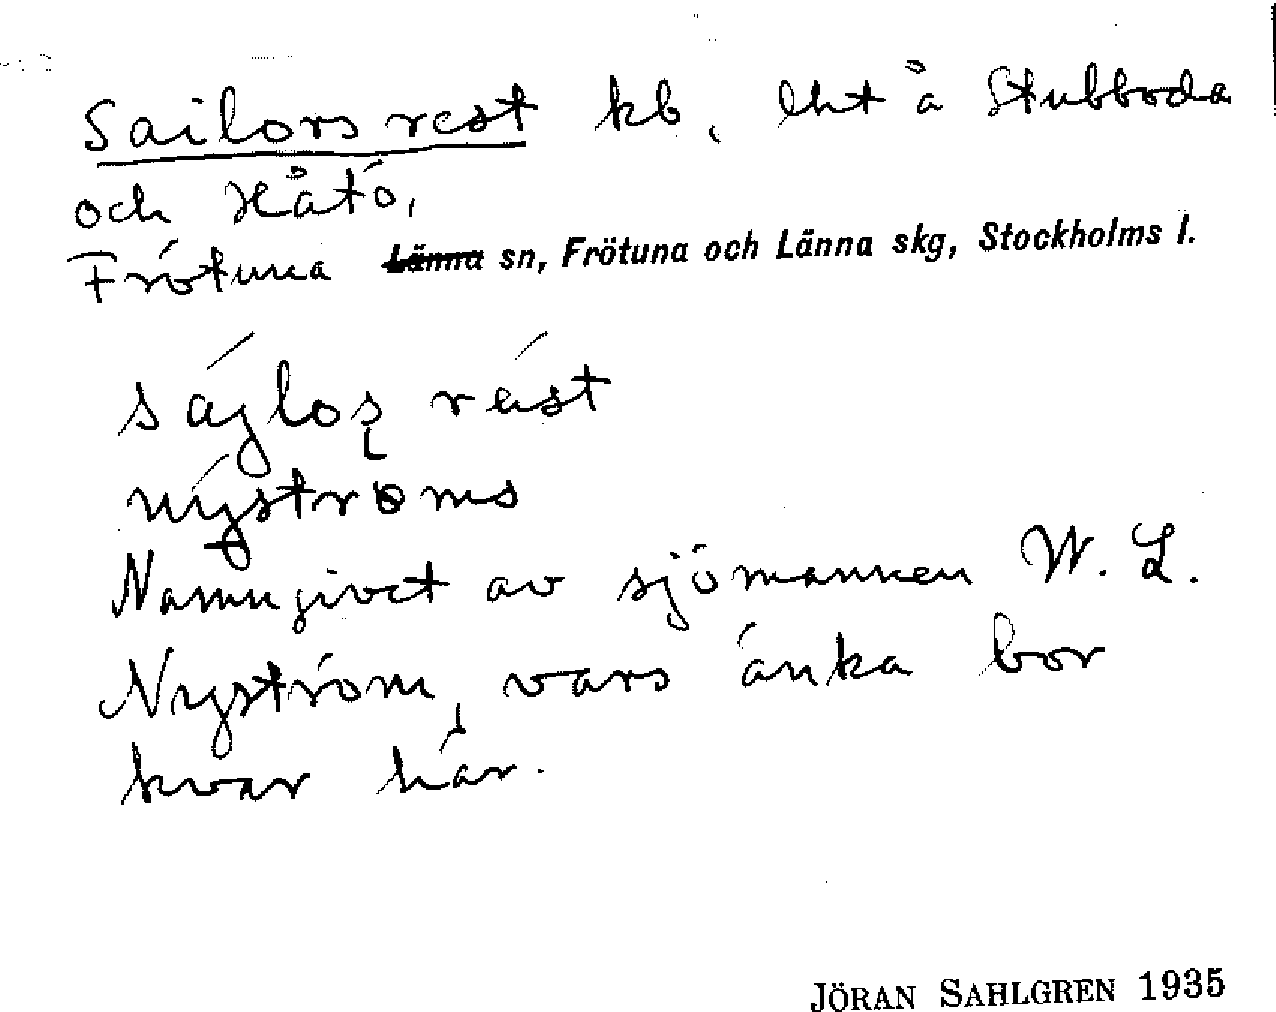 Sailors rest kb, lht å Stubboda
och Håtö,
Frötuna Länna sn, Frötuna och Länna skg, Stockholms l.
sájlos rást
nýströms
Namngivet av sjömannen W. L.
Nyström, vars änka bor
kvar här.
JÖRAN SAHLGREN 1935